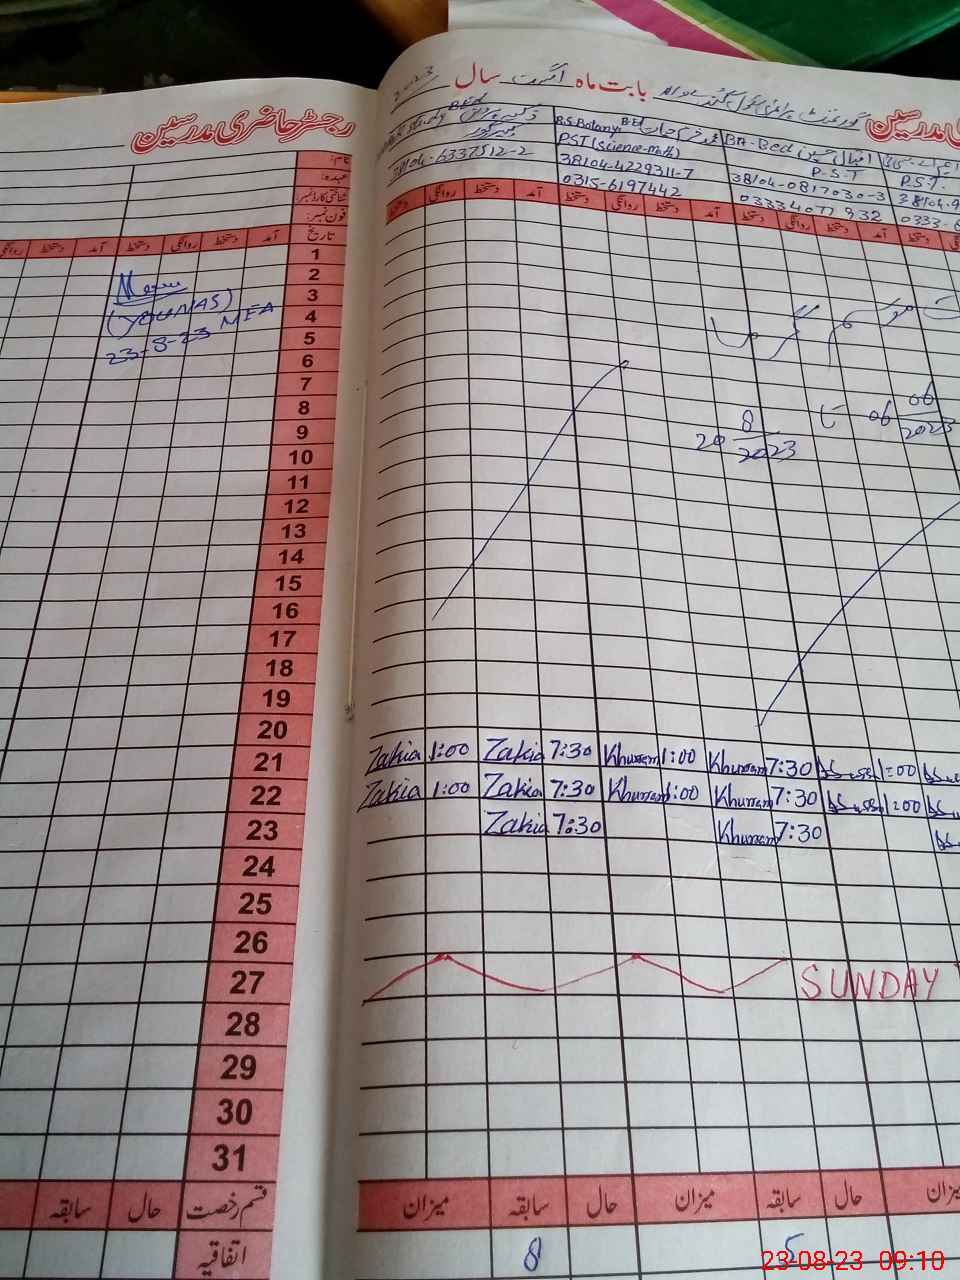 رجسٹر حاضری مدرسین
نام:
عہدہ:
شناختی کارڈ نمبر:
فون نمبر:
تاریخ آمد دستخط روانگی دستخط آمد دستخط روانگی
1
2
3
4
5
6
7
8
9
10
11
12
13
14
15
16
17
18
19
20
21
22
23
24
25
26
27
28
29
30
31
(YOUNAS)
23-8-23 MEA
قسم رخصت حال سابقہ
اتفاقیہ
مدرسین
بابت ماہ اگست سال 2023
P.S.T.
38104-9
0333-6
BA-Bed اقبال حسین
P-S-T
38104-0817030-3
03334077932
B.S.Botany, B-Ed
PST (Science-Math)
38104-4229311-7
0315-6197442
38104-6337512-2
روانگی دستخط آمد دستخط روانگی دستخط آمد دستخط روانگی دستخط
موسم گرما
06 06/2023 تا 20 8/2023
Zakia 1:00 Zakia 7:30 Khurram 1:00 Khurram 7:30 1:00
Zakia 1:00 Zakia 7:30 Khurram 1:00 Khurram 7:30 1:00
Zakia 7:30 Khurram 7:30
SUNDAY
میزان حال سابقہ میزان حال سابقہ میزان
5 8
23-08-23 09:10